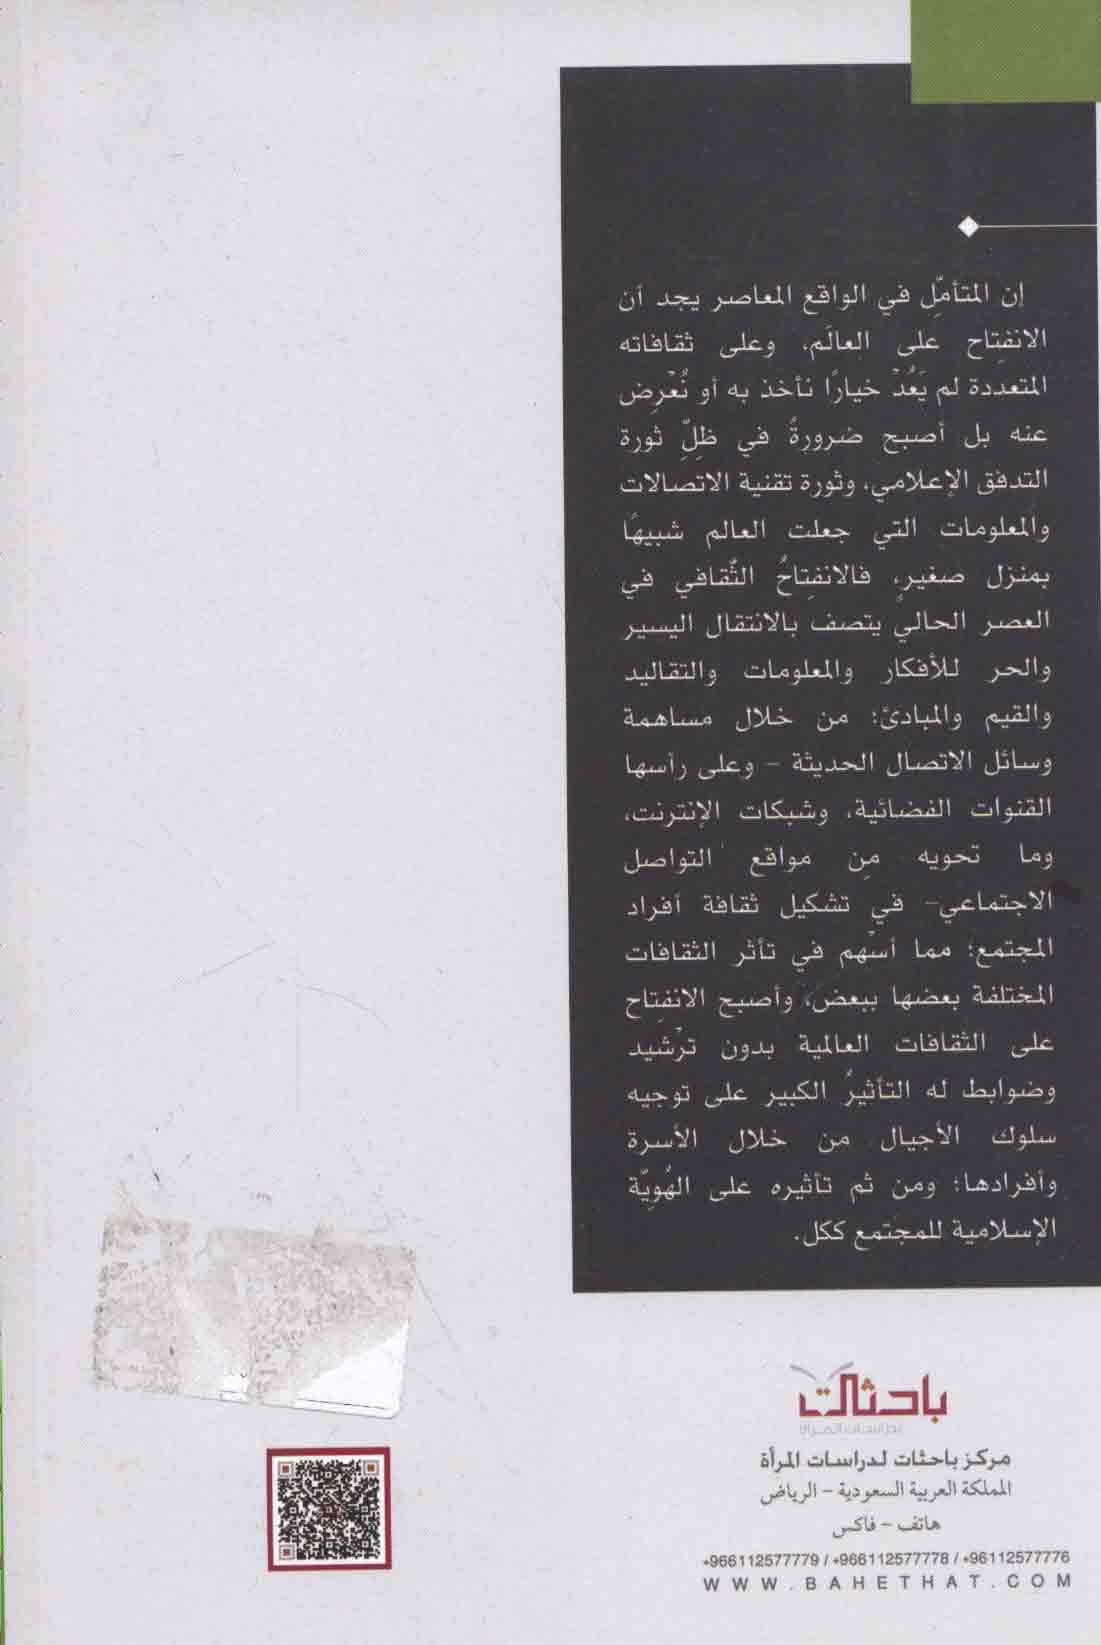 إن المتأمِّل في الواقع المعاصر يجد أن
الانفِتاح على العالَم، وعلى ثقافاته
المتعددة لم يَعُدْ خيارًا نأخذ به أو نُعْرِض
عنه بل أصبح ضرورةً في ظِلِّ ثورة
التدفق الإعلامي، وثورة تقنية الاتصالات
والمعلومات التي جعلت العالم شبيهًا
بمنزل صغيرٍ، فالانفِتاحُ الثَّقافي في
العصر الحالي يتصف بالانتقال اليسير
والحر للأفكار والمعلومات والتقاليد
والقيم والمبادئ؛ من خلال مساهمة
وسائل الاتصال الحديثة – وعلى رأسها
القنوات الفضائية، وشبكات الإنترنت،
وما تحويه مِن مواقع التواصل
الاجتماعي– في تشكيل ثقافة أفراد
المجتمع؛ مما أسْهم في تأثر الثقافات
المختلفة بعضها ببعض، وأصبح الانفِتاح
على الثقافات العالمية بدون ترْشيد
وضوابط له التأثيرُ الكبير على توجيه
سلوك الأجيال من خلال الأسرة
وأفرادها؛ ومن ثم تأثيره على الهُوِيَّة
الإسلامية للمجتمع ككل.
باحثات
لدراسات المرأة
مركز باحثات لدراسات المرأة
المملكة العربية السعودية – الرياض
هاتف – فاكس
+966112577779 / +966112577778 / +96112577776
WWW.BAHETHAT.COM